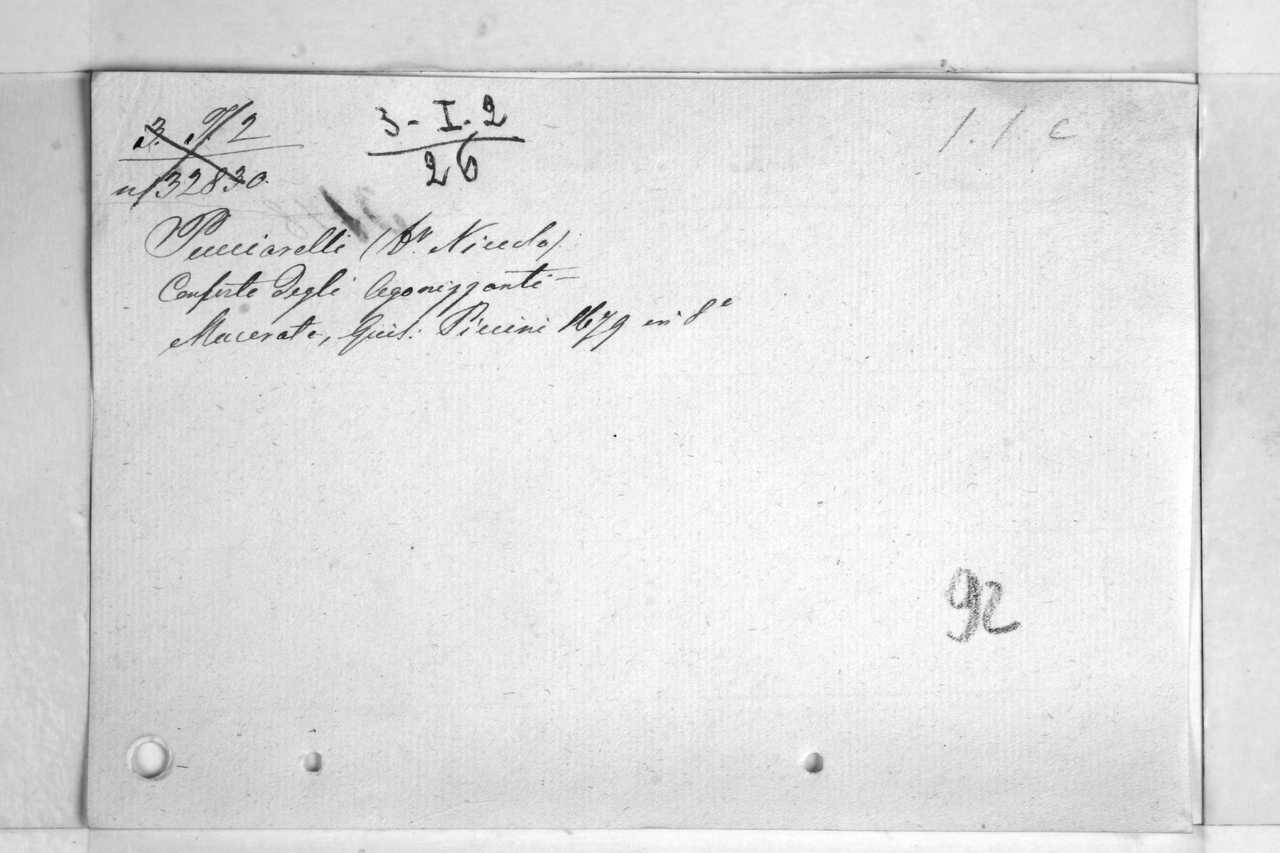 3. I/2
n/32830
3-I.2
26
1. 1. c
Pucciarelli (Dr. Niccolo)
Conforto degli Agonizzanti -
Macerata, Gius: Piccini 1679 in 8°
92